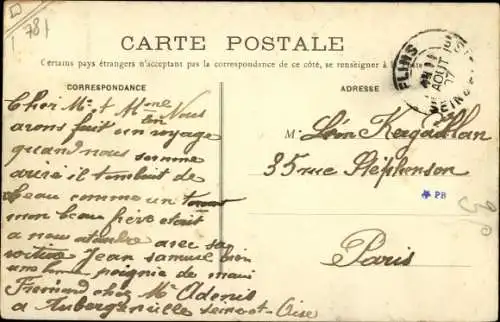 78
CARTE POSTALE
Certains pays étrangers n'acceptant pas la correspondance de ce côté, se renseigner à la poste
CORRESPONDANCE
ADRESSE
FLINS
AOUT
07
SEINE
Cher Mr et Mme
Léon Nous
avons fait un voyage
quand nous somme
arivé il tombait de
leau comme un
mon beau frère etait
a nous atendre avec sa
voiture Jean samuse bien
une bonne poignie de main
chez Mr Adonis
a Aubergenville Seine et Oise
M. Léon
35 rue Stéphenson
Paris
PB